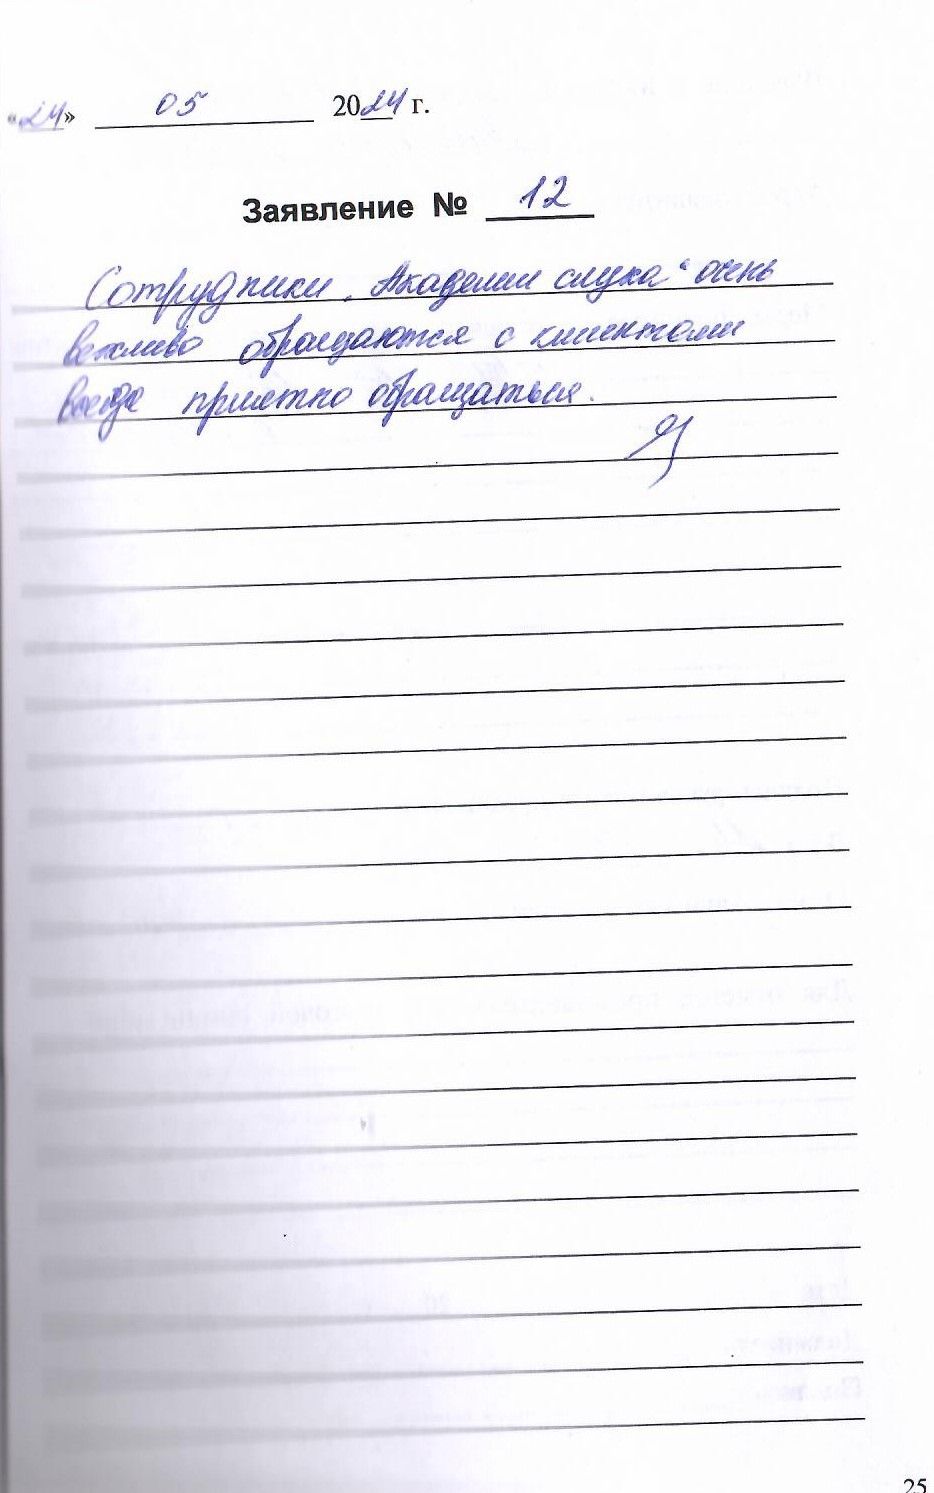 «24» 05 2024 г.
Заявление № 12
Сотрудники „Академии слуха“ очень
вежливо обращаются с клиентами
всегда приятно обращаться.
25